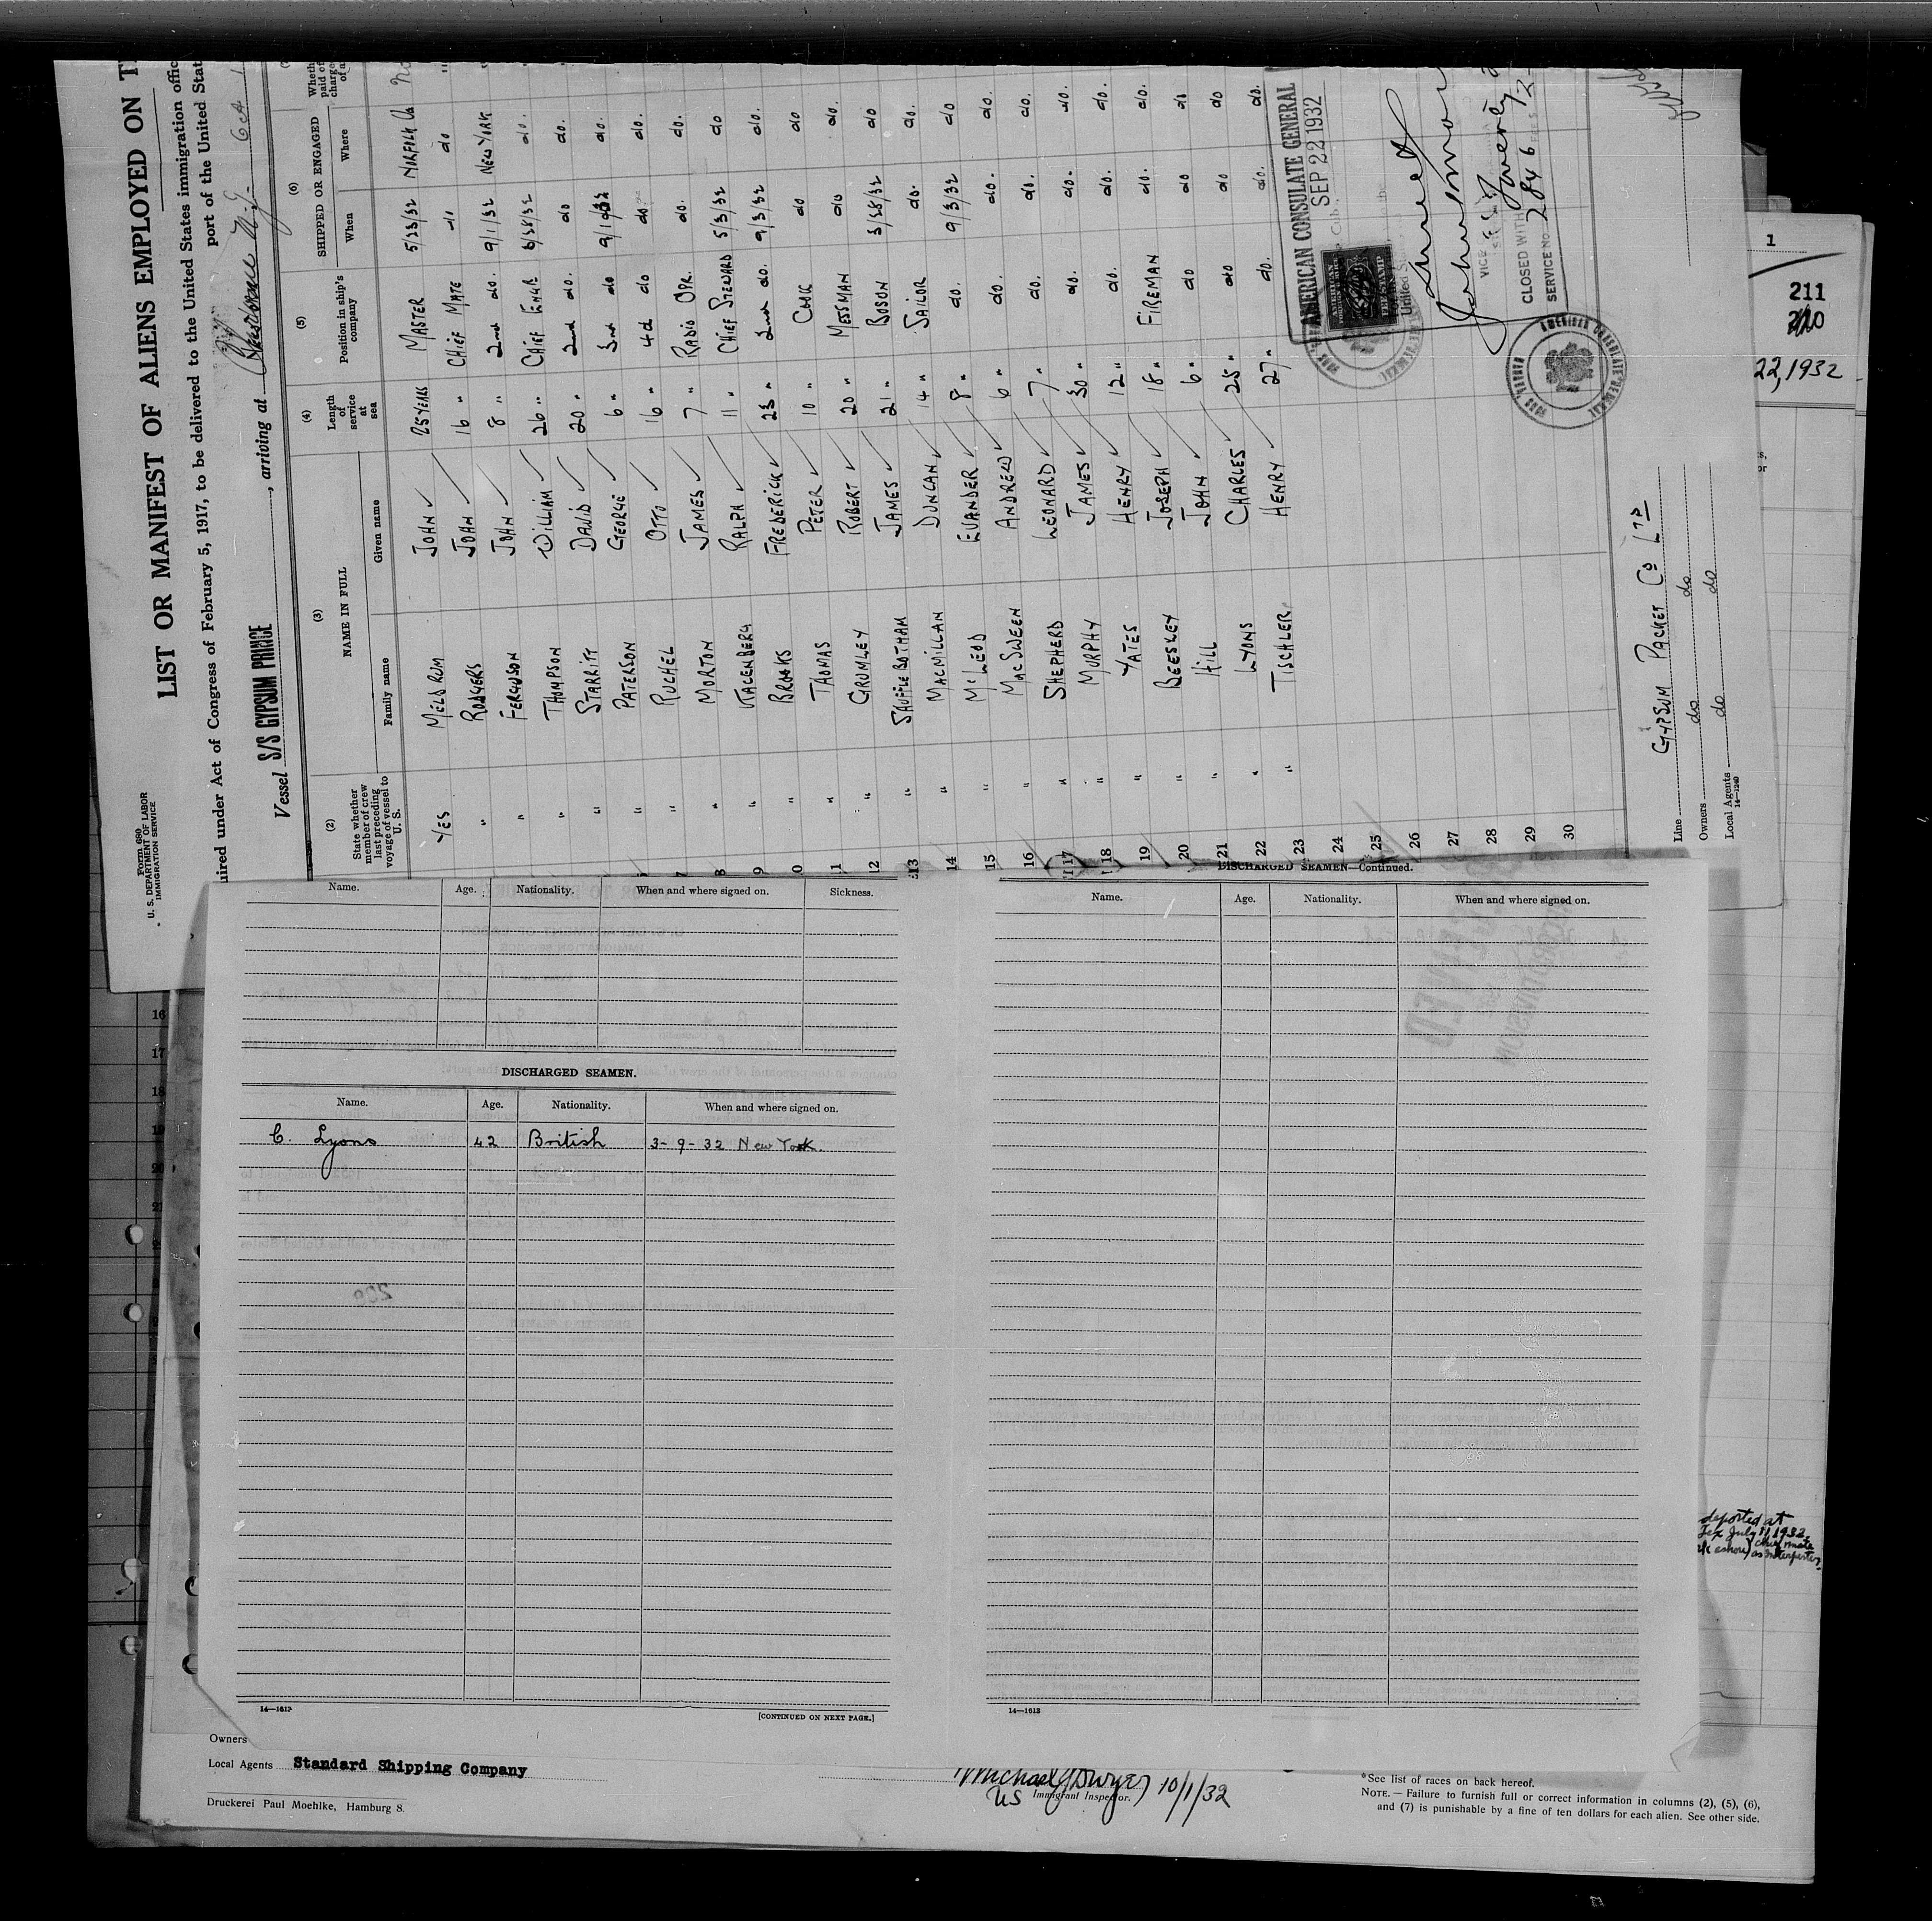 Form 680
U. S. DEPARTMENT OF LABOR
IMMIGRATION SERVICE
LIST OR MANIFEST OF ALIENS EMPLOYED ON
uired under Act of Congress of February 5, 1917, to be delivered to the United States immigration offic
port of the United Stat
Vessel S/S GYPSUM PRINCE, arriving at
(2) (3) (4) (5) (6)
State whether member of crew last preceding voyage of vessel to U. S. NAME IN FULL Length of service at sea Position in ship's company SHIPPED OR ENGAGED
Family name Given name When Where
YES MELDRUM JOHN 25 YEARS MASTER 5/23/32 NORFOLK Va No
" RODGERS JOHN 16 " CHIEF MATE do do "
" FERGUSON JOHN 8 " 2nd do. 9/1/32 NEW YORK
" THOMPSON WILLIAM 26 " CHIEF ENGR 6/28/32 do.
" STARRITT DAVID 20 " 2nd do. do do.
" PATERSON GEORGE 6 " 3rd do 9/1/32 do.
" RUCHEL OTTO 16 " 4th do do do.
" MORTON JAMES 7 " RADIO OPR. do. do.
" RALPH 11 " CHIEF STEWARD 5/3/32 do
" BROOKS FREDERICK 23 " 2nd do. 9/3/32 do.
" THOMAS PETER 10 " COOK do do
" GRUMLEY ROBERT 20 " MESSMAN do do.
" SHUFFLEBOTHAM JAMES 21 " BOSON 3/28/32 do
" MACMILLAN DUNCAN 14 " SAILOR do. do.
" McLEOD EVANDER 8 " do. 9/3/32 do
" MACSWEEN ANDREW 6 " do. do. do.
" SHEPHERD LEONARD 7 " do. do. do.
" MURPHY JAMES 30 " do. do. do.
" YATES HENRY 12 " do. do. do.
" BEESLEY JOSEPH 18 " FIREMAN do. do.
" HILL JOHN 6 " do do do
" LYONS CHARLES 25 " do do do
" TISCHLER HENRY 27 " do. do. do.
24
25
26
27
28
29
30
AMERICAN CONSULATE GENERAL
SEP 22 1932
VICE
CLOSED WITH
SERVICE No. 2846
AMERICAN CONSULATE GENERAL
Line GYPSUM PACKET Co LTD
Owners do do
Local Agents do do
14—1240
1
211
22, 1932
Name. Age. Nationality. When and where signed on. Sickness.
DISCHARGED SEAMEN.
Name. Age. Nationality. When and where signed on.
C. Lyons 42 British 3-9-32 New York.
14—1613
[CONTINUED ON NEXT PAGE.]
DISCHARGED SEAMEN—Continued.
Name. Age. Nationality. When and where signed on.
14—1613
deported at
Tex July 11, 1932
Owners
Local Agents Standard Shipping Company
Druckerei Paul Moehlke, Hamburg 8.
Michael J Dwyer 10/1/32
US Immigrant Inspector.
*See list of races on back hereof.
NOTE. — Failure to furnish full or correct information in columns (2), (5), (6),
and (7) is punishable by a fine of ten dollars for each alien. See other side.